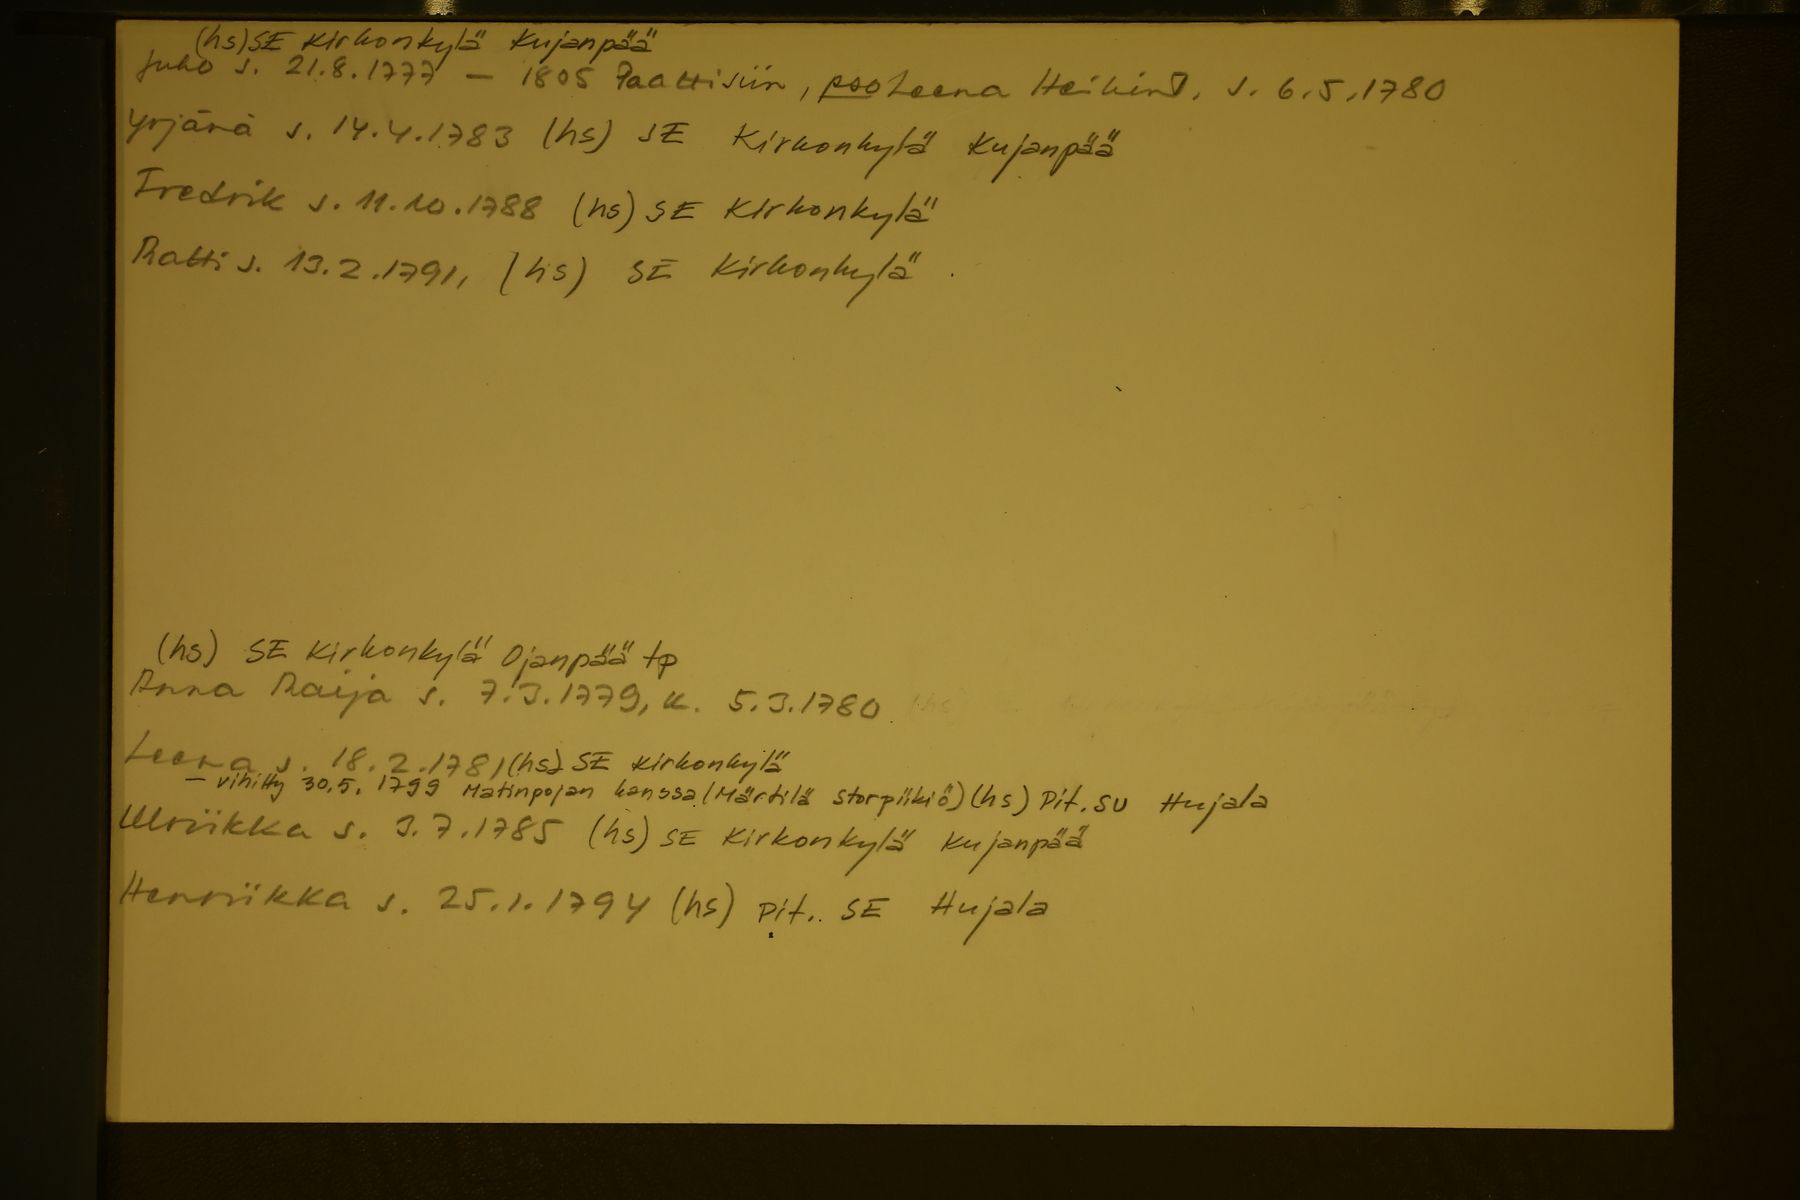 (hs) SE Kirkonkylä Kujanpää
Juho s. 21.8.1777 – 1805 Paattisiin, pso Leena Heikint. s. 6.5.1780
Yrjänä s. 14.4.1783 (hs) SE Kirkonkylä Kujanpää
Fredrik s. 11.10.1788 (hs) SE Kirkonkylä
Matti s. 13.2.1791, (hs) SE Kirkonkylä
(hs) SE Kirkonkylä Ojanpää tp
Anna Maija s. 7.3.1779, k. 5.3.1780
Leena s. 18.2.1781 (hs) SE Kirkonkylä
– vihitty 30.5.1799 Matinpojan kanssa (Märtilä Storpiikiö) (hs) Pit. SU Hujala
Ulriikka s. 3.7.1785 (hs) SE Kirkonkylä Kujanpää
Henriikka s. 25.1.1794 (hs) pit.. SE Hujala